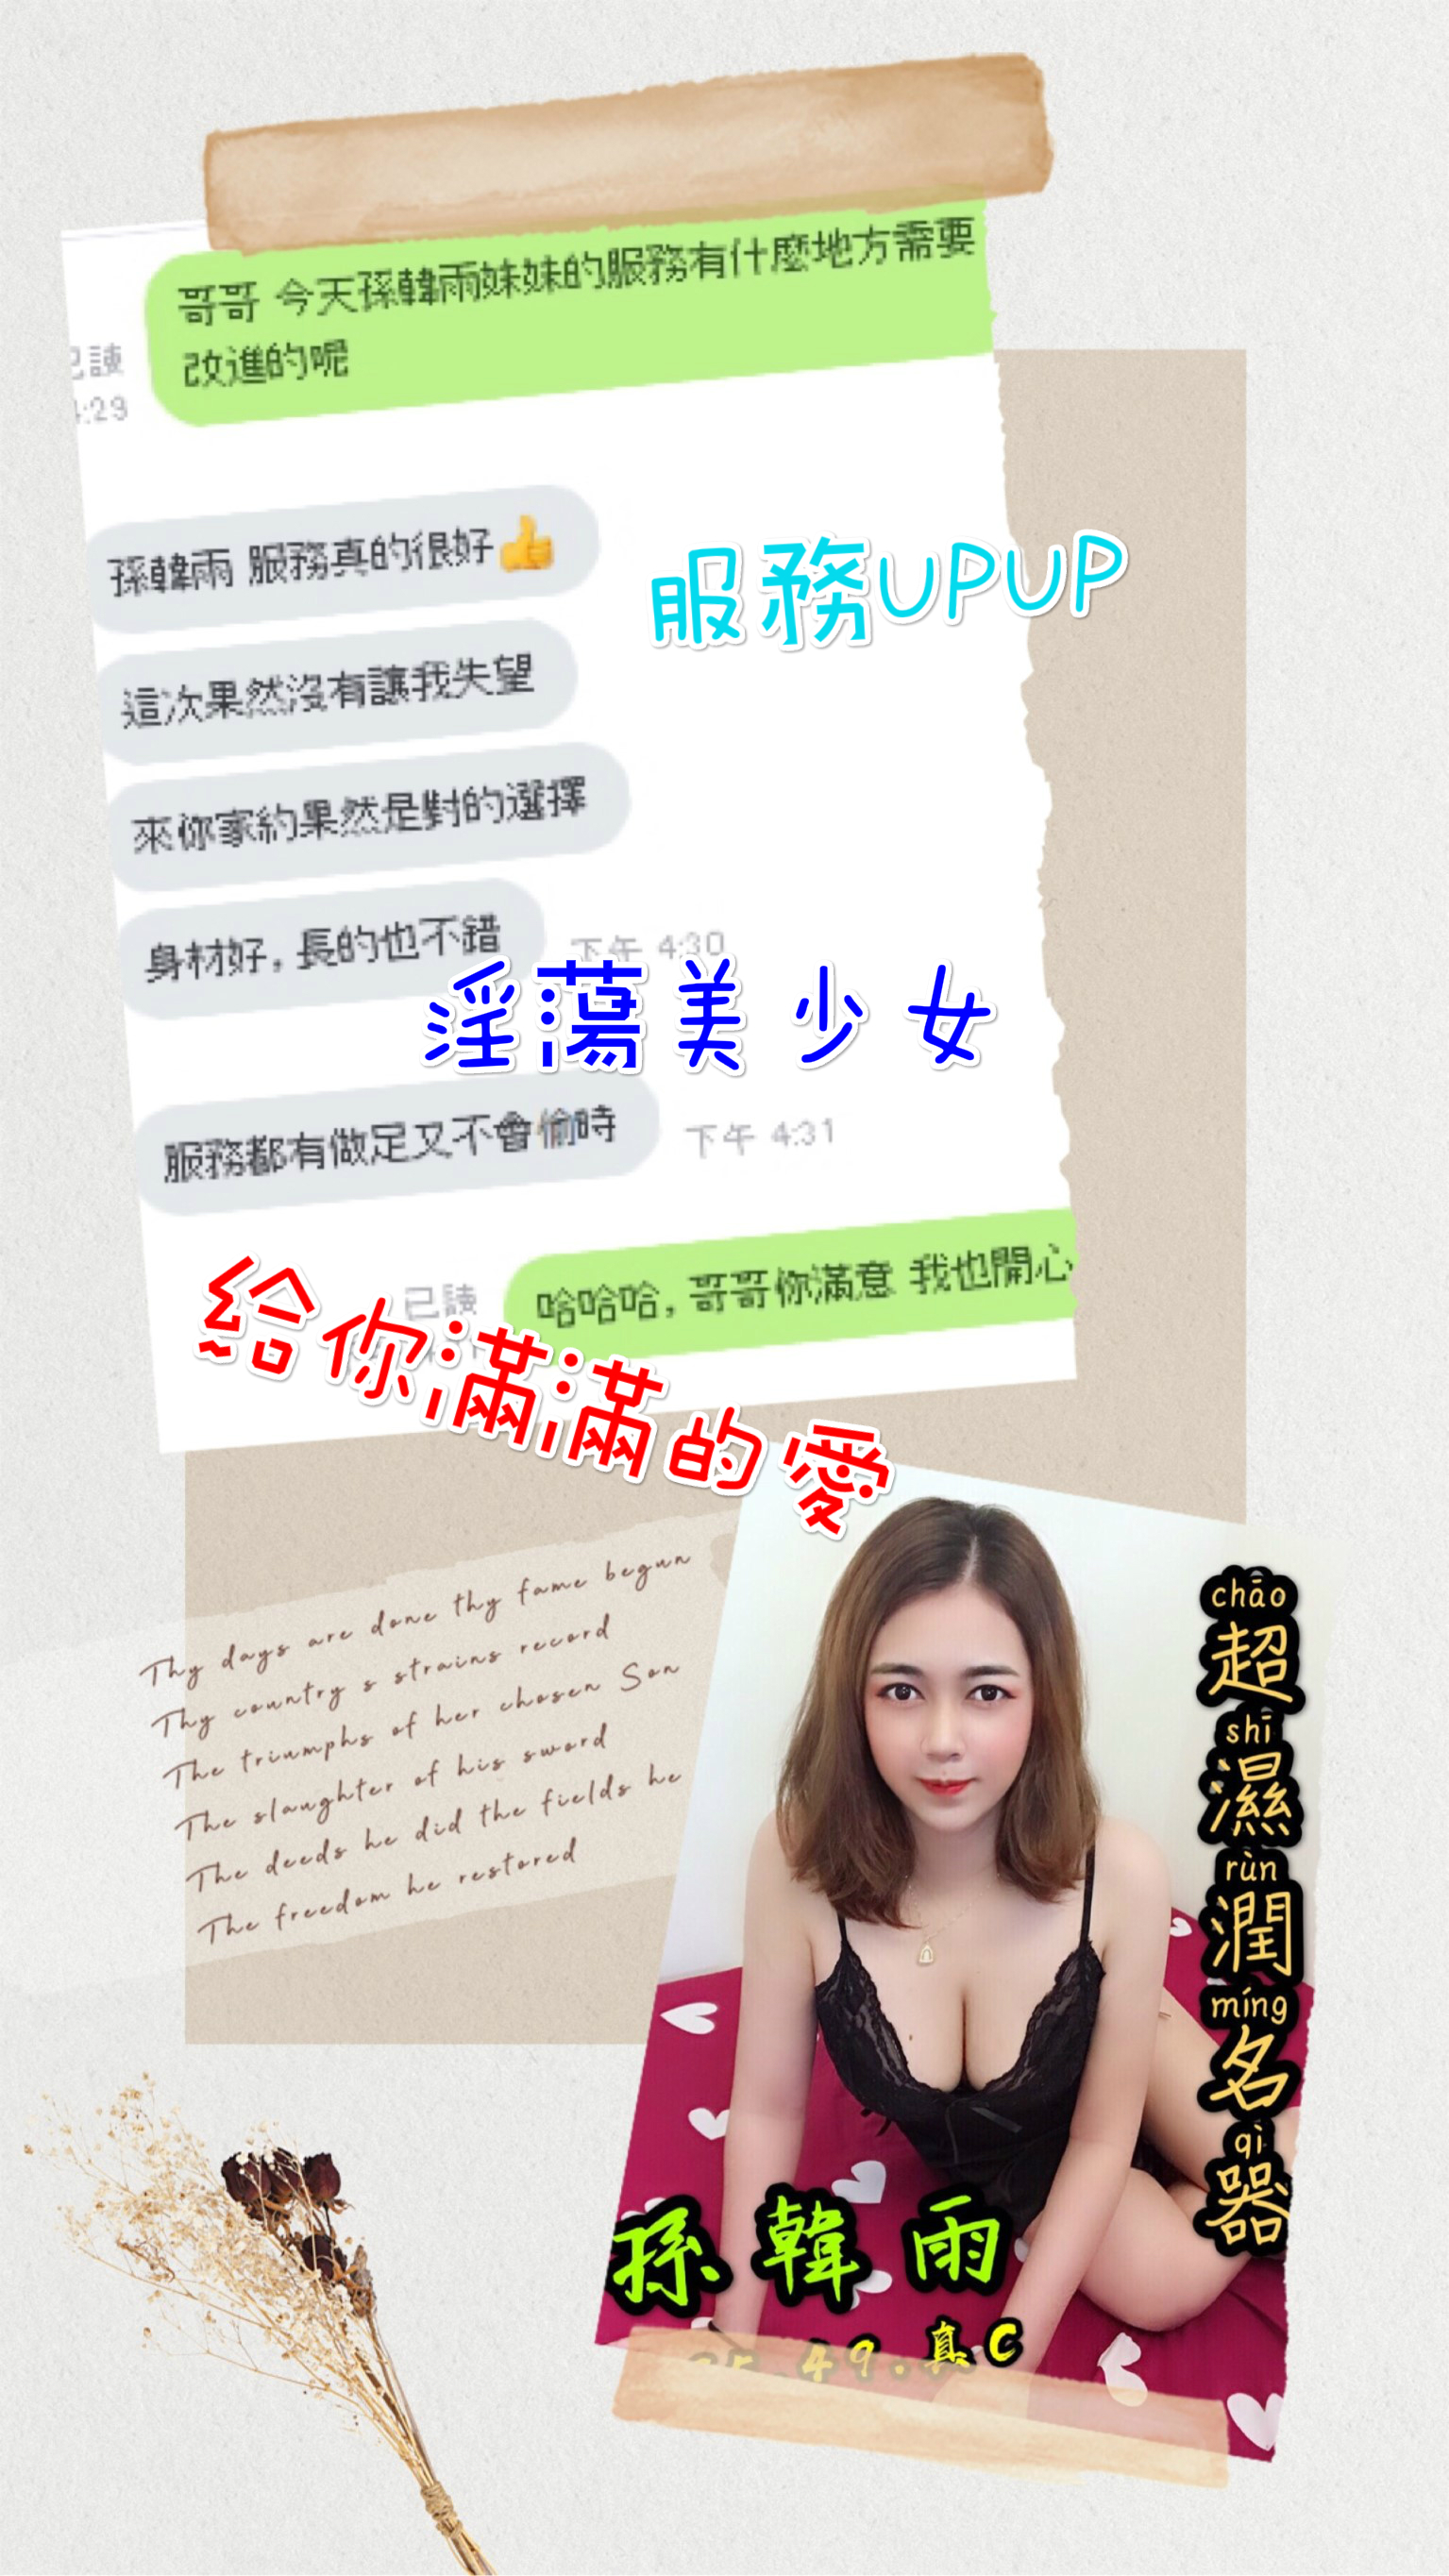 哥哥 今天孫韓雨妹妹的服務有什麼地方需要
改進的呢
已讀
4:29
孫韓雨 服務真的很好👍
服務UPUP
這次果然沒有讓我失望
來你家約果然是對的選擇
身材好, 長的也不錯
下午 4:30
淫蕩美少女
服務都有做足又不會偷時
下午 4:31
已讀
哈哈哈, 哥哥你滿意 我也開心
給你滿滿的愛
Thy days are done thy fame begun
Thy country s strains record
The triumphs of her chosen Son
The slaughter of his sword
The deeds he did the fields he
The freedom he restored
chāo
超
shī
濕
rùn
潤
míng
名
qì
器
孫韓雨
49.真C